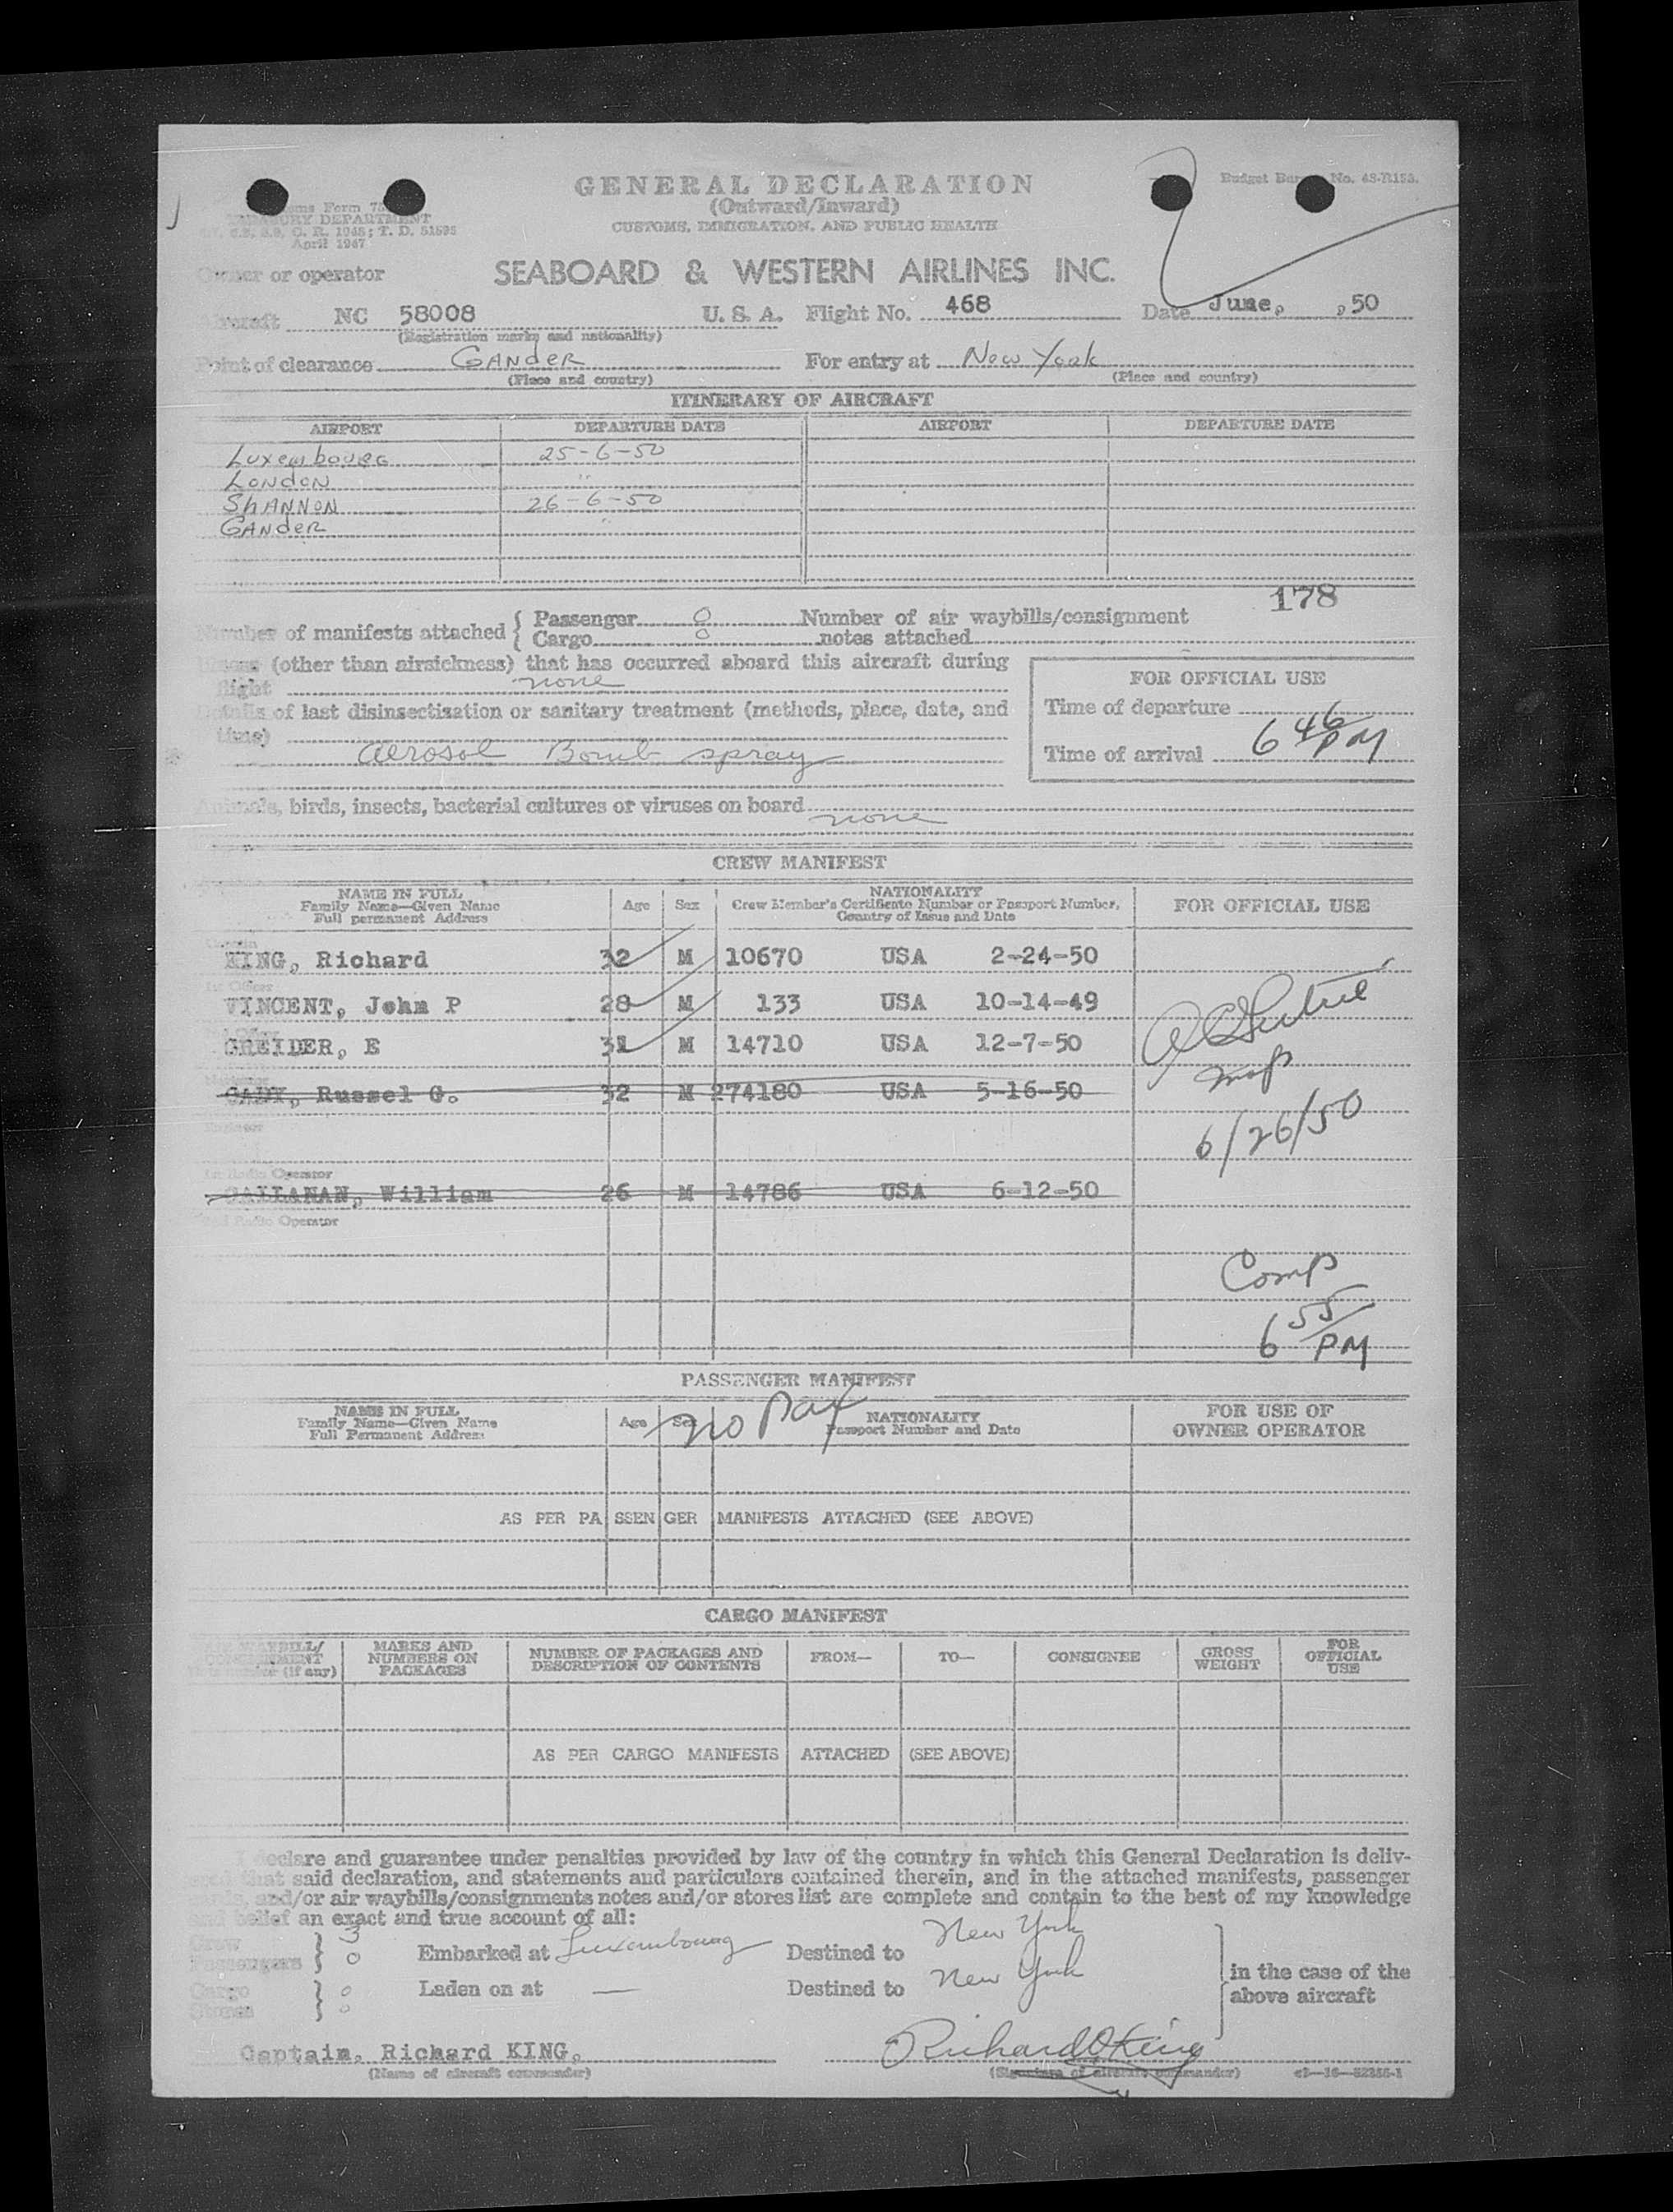 GENERAL DECLARATION
(Outward/Inward)
CUSTOMS, IMMIGRATION, AND PUBLIC HEALTH
Budget No. 48-R153.
Form
TREASURY DEPARTMENT
C. R. 1948; T. D. 51595
April 1947
Owner or operator SEABOARD & WESTERN AIRLINES INC.
Aircraft NC 58008 U. S. A. Flight No. 468 Date June, , 50
(Registration marks and nationality)
Point of clearance GANdER For entry at New York
(Place and country) (Place and country)
ITINERARY OF AIRCRAFT
AIRPORT DEPARTURE DATE AIRPORT DEPARTURE DATE
Luxembourg 25-6-50
LONdON "
ShANNON 26-6-50
GANdeR "
178
Number of manifests attached { Passenger 0 Number of air waybills/consignment
Cargo 0 notes attached
Illness (other than airsickness) that has occurred aboard this aircraft during
flight none
Details of last disinsectization or sanitary treatment (methods, place, date, and
time)
aerosol Bomb spray
FOR OFFICIAL USE
Time of departure
Time of arrival 6 46 PM
Animals, birds, insects, bacterial cultures or viruses on board none
CREW MANIFEST
NAME IN FULL
Family Name—Given Name
Full permanent Address
Age Sex
NATIONALITY
Crew Member's Certificate Number or Passport Number,
Country of Issue and Date
FOR OFFICIAL USE
Captain
KING, Richard 32 M 10670 USA 2-24-50
1st Officer
VINCENT, John P 28 M 133 USA 10-14-49
GREIDER, E 31 M 14710 USA 12-7-50
Navigator
CADY, Russel G. 32 M 274180 USA 5-16-50
6/26/50
Engineer
1st Radio Operator
CALLANAN, William 26 M 14786 USA 6-12-50
2nd Radio Operator
Comp
6 55 PM
PASSENGER MANIFEST
no Pax
NAMES IN FULL
Family Name—Given Name
Full Permanent Address
Age Sex
NATIONALITY
Passport Number and Date
FOR USE OF
OWNER OPERATOR
AS PER PASSENGER MANIFESTS ATTACHED (SEE ABOVE)
CARGO MANIFEST
WAYBILL/
CONSIGNMENT
(if any)
MARKS AND
NUMBERS ON
PACKAGES
NUMBER OF PACKAGES AND
DESCRIPTION OF CONTENTS
FROM— TO— CONSIGNEE
GROSS
WEIGHT
FOR
OFFICIAL
USE
AS PER CARGO MANIFESTS ATTACHED (SEE ABOVE)
I declare and guarantee under penalties provided by law of the country in which this General Declaration is deliv-
ered that said declaration, and statements and particulars contained therein, and in the attached manifests, passenger
and/or air waybills/consignments notes and/or stores list are complete and contain to the best of my knowledge
and belief an exact and true account of all:
Crew 3
Passengers 0 Embarked at Luxembourg Destined to New York
Cargo 0 Laden on at — Destined to New York
Stores 0
in the case of the
above aircraft
Captain, Richard KING, Richard O King
(Name of aircraft commander) (Signature of aircraft commander)